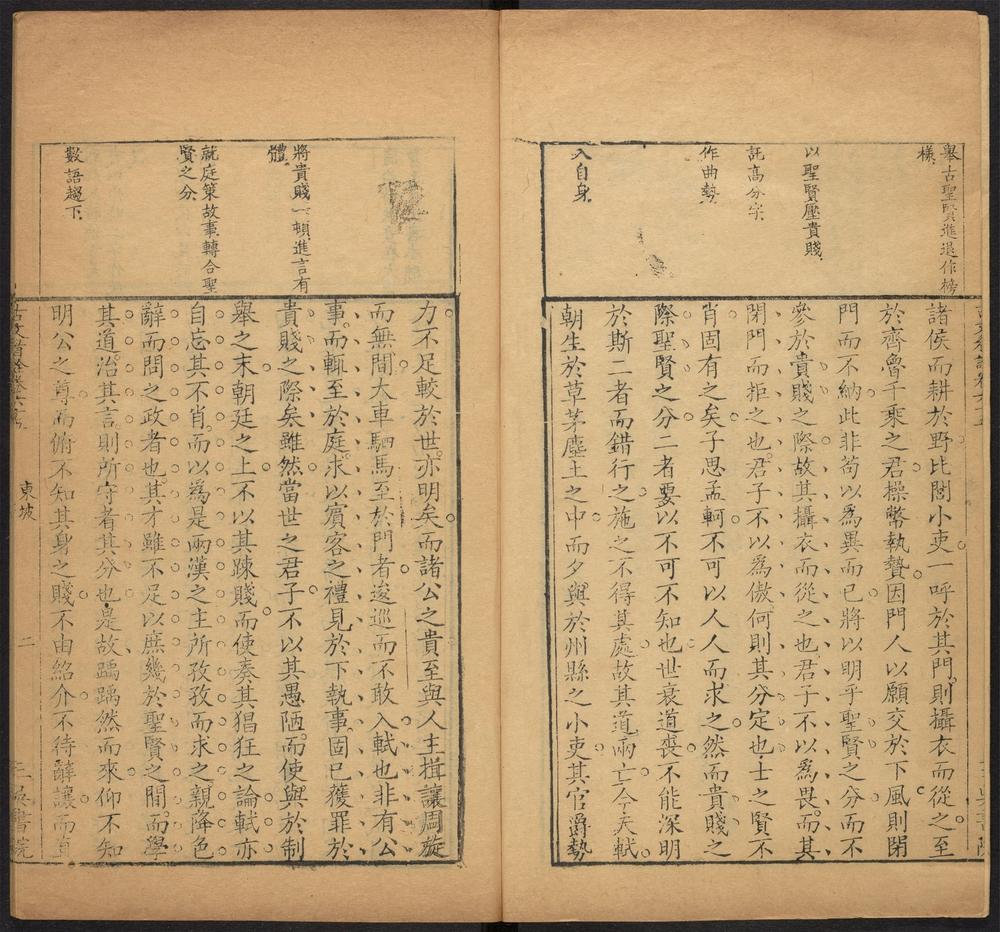 舉古聖賢進退作榜
樣
以聖賢壓貴賤
託高分字
作曲勢
入自身
諸侯而耕於野比閭小吏一呼於其門則攝衣而從之至
於齊魯千乘之君操幣執贄因門人以願交於下風則閉
門而不納此非苟以爲異而已將以明乎聖賢之分而不
參於貴賤之際故其攝衣而從之也君子不以爲畏而其
閉門而拒之也君子不以爲傲何則其分定也士之賢不
肖固有之矣子思孟軻不可以人人而求之然而貴賤之
際聖賢之分二者要以不可不知也世衰道喪不能深明
於斯二者而錯行之施之不得其處故其道兩亡今夫軾
朝生於草茅塵土之中而夕與於州縣之小吏其官爵勢
將貴賤一頓進言有
體
就庭策故事轉合聖
賢之分
數語趨下
力不足較於世亦明矣而諸公之貴至與人主揖讓周旋
而無間大車駟馬至於門者逡巡而不敢入軾也非有公
事而輒至於庭求以賓客之禮見於下執事固已獲罪於
貴賤之際矣雖然當世之君子不以其愚陋而使與於制
舉之末朝廷之上不以其踈賤而使奏其猖狂之論軾亦
自忘其不肖而以爲是兩漢之主所孜孜而求之親降色
辭而問之政者也其才雖不足以庶幾於聖賢之間而學
其道治其言則所守者其分也是故踽踽然而來仰不知
明公之尊而俯不知其身之賤不由紹介不待辭讓而直
東坡
二